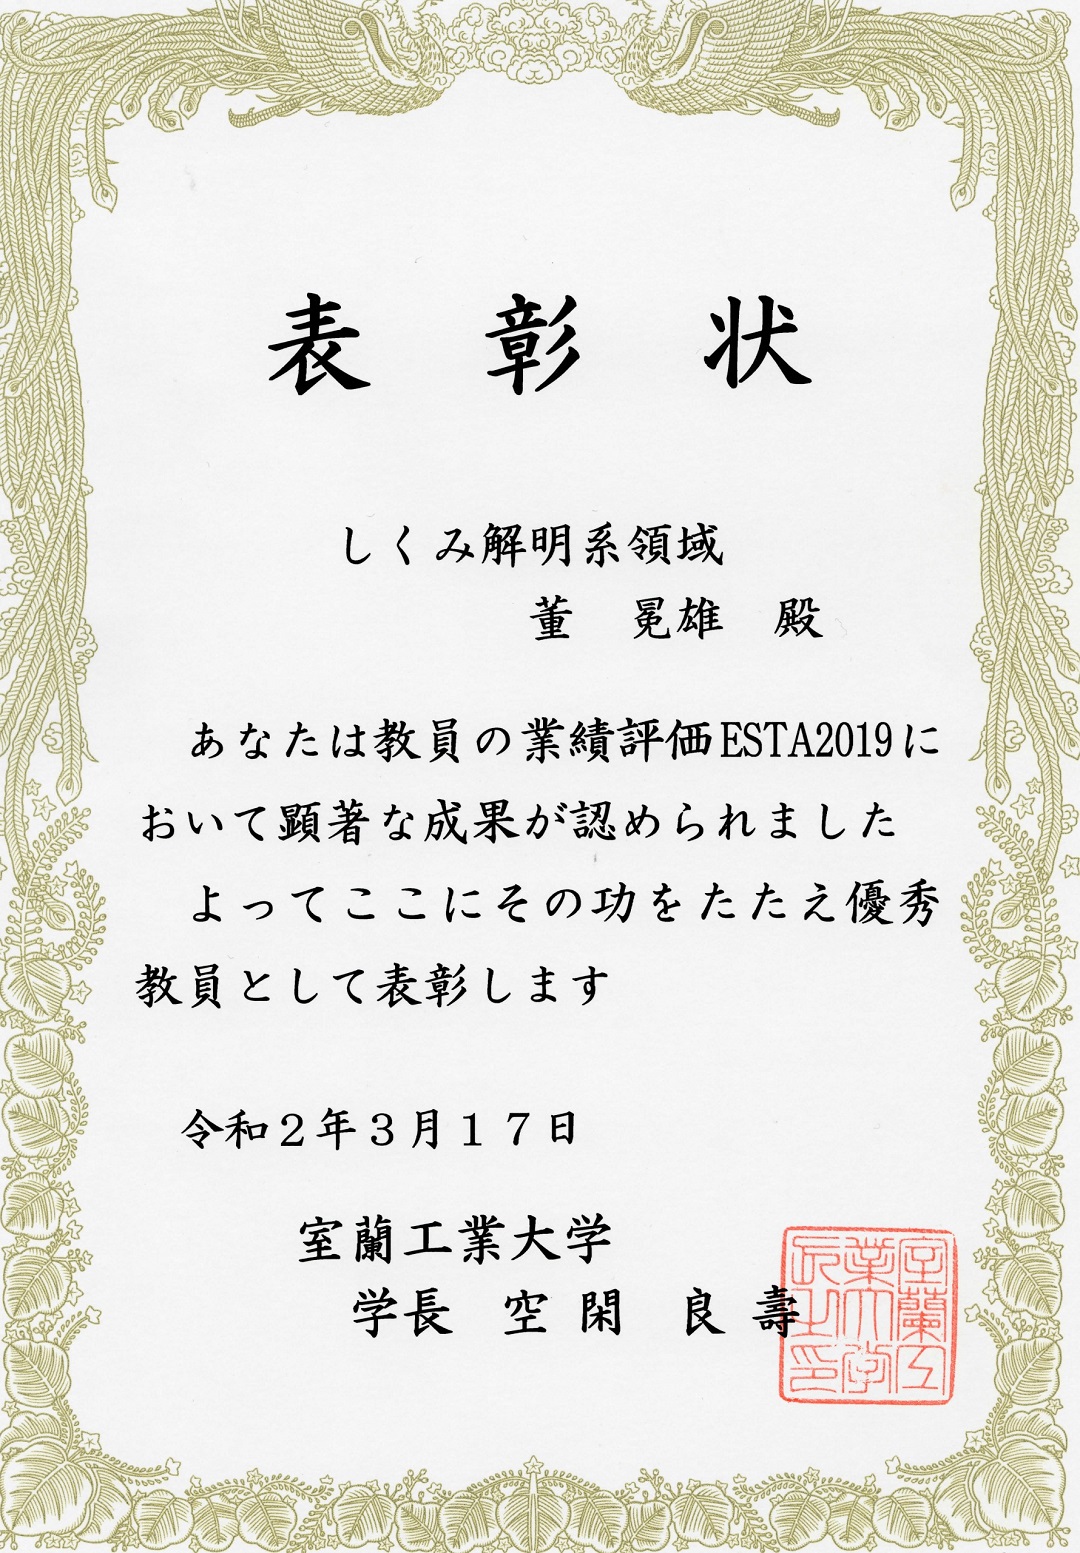 表　彰　状
しくみ解明系領域
董　冕雄　殿
あなたは教員の業績評価ESTA2019に
おいて顕著な成果が認められました
よってここにその功をたたえ優秀
教員として表彰します
令和２年３月１７日
室蘭工業大学
学長　空閑　良壽
室蘭工
業大学
長之印